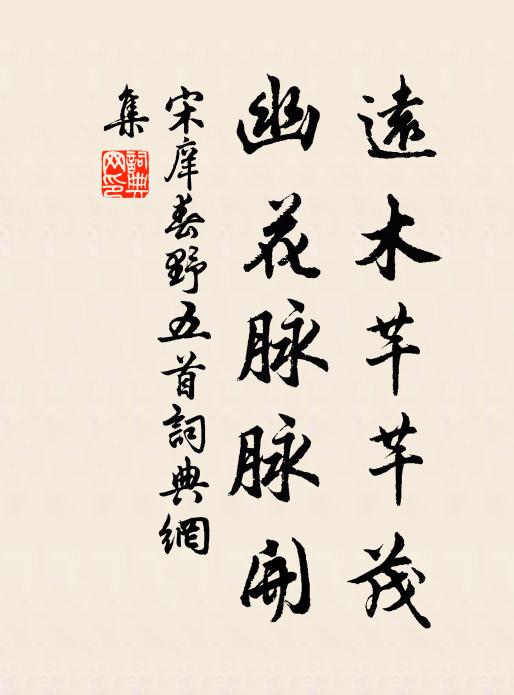 遠木芊芊茂
幽花脉脉開
宋庠春野五首詞典網
集
詞典網印